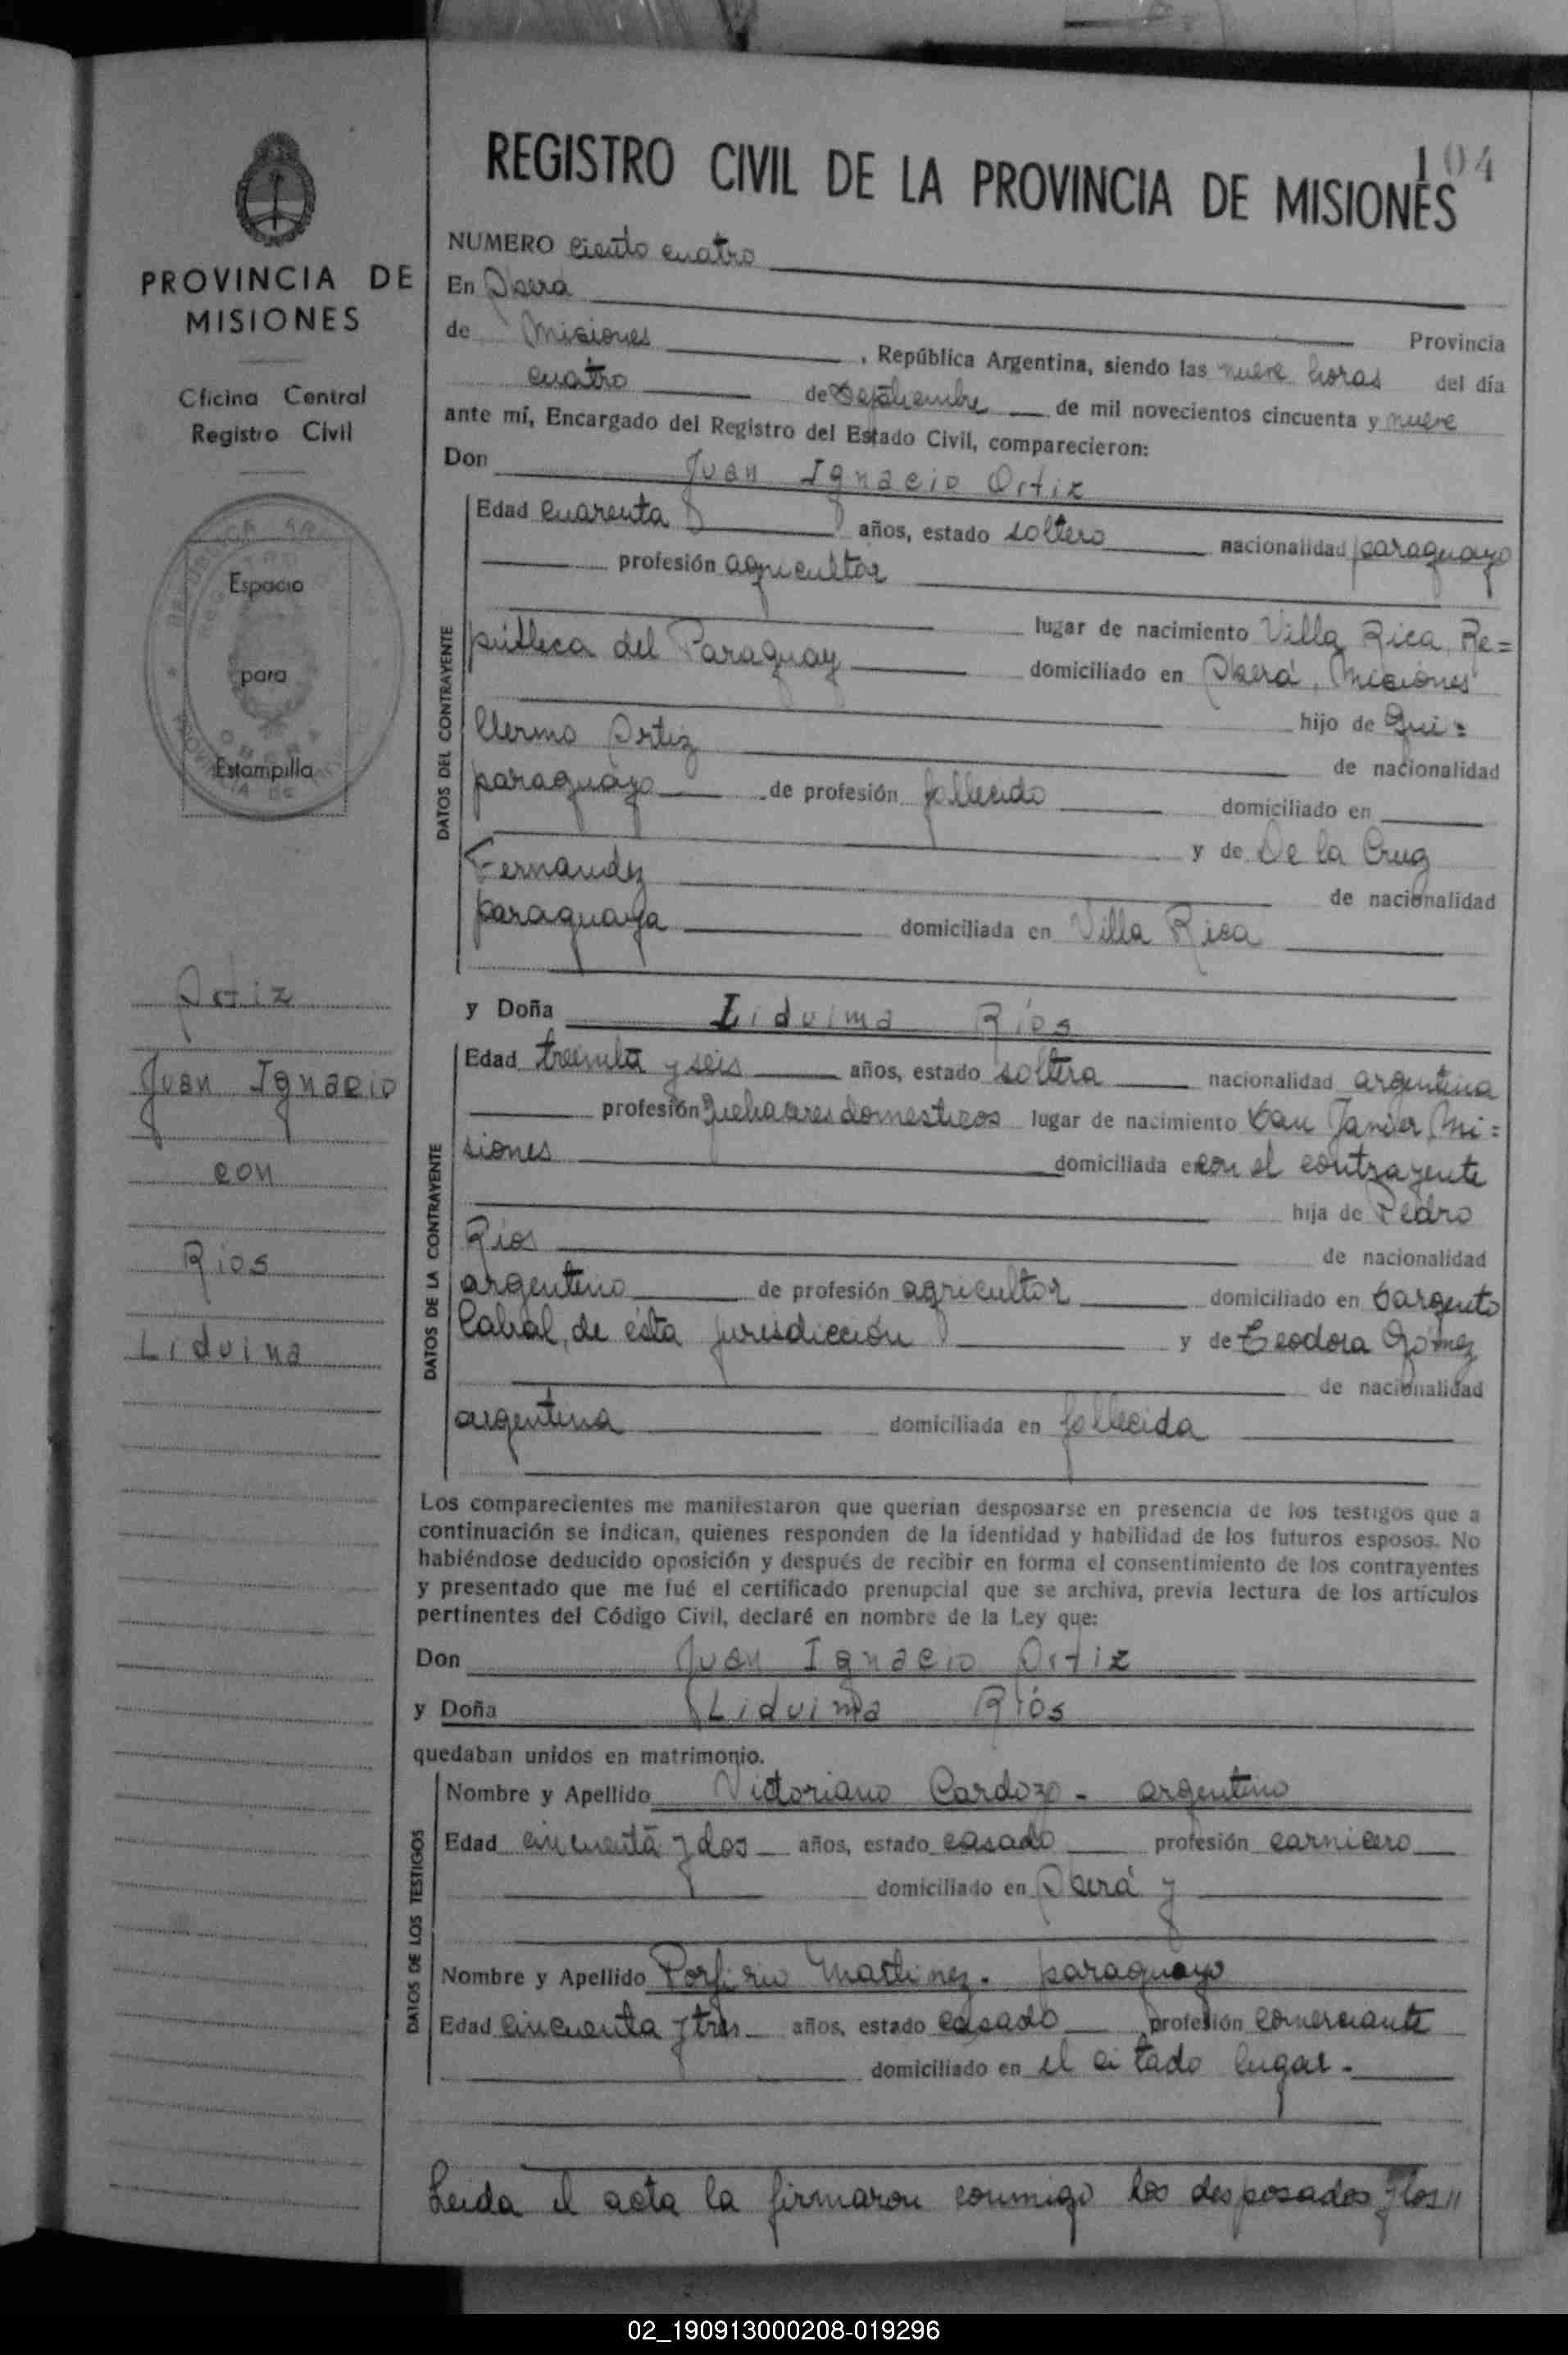 104
REGISTRO CIVIL DE LA PROVINCIA DE MISIONES
PROVINCIA DE
MISIONES
Oficina Central
Registro Civil
Espacio
para
Estampilla
Ortiz
Juan Ignacio
con
Rios
Liduina
NUMERO ciento cuatro
En Oberá Provincia
de Misiones, República Argentina, siendo las nueve horas del día
cuatro de Septiembre de mil novecientos cincuenta y nueve
ante mí, Encargado del Registro del Estado Civil, comparecieron:
Don Juan Ignacio Ortiz
DATOS DEL CONTRAYENTE
Edad cuarenta años, estado soltero nacionalidad paraguayo
profesión agricultor
lugar de nacimiento Villa Rica, Re=
pública del Paraguay domiciliado en Oberá, Misiones
hijo de Gui=
llermo Ortiz de nacionalidad
paraguayo de profesión fallecido domiciliado en
y de De la Cruz
Fernandez de nacionalidad
paraguaya domiciliada en Villa Rica
y Doña Liduina Ríos
DATOS DE LA CONTRAYENTE
Edad treinta y seis años, estado soltera nacionalidad argentina
profesión quehaceres domesticos lugar de nacimiento San Javier, Mi=
siones domiciliada en con el contrayente
hija de Pedro
Rios de nacionalidad
argentino de profesión agricultor domiciliado en Sargento
Cabral, de ésta jurisdicción y de Teodora Gómez
de nacionalidad
argentina domiciliada en fallecida
Los comparecientes me manifestaron que querían desposarse en presencia de los testigos que a
continuación se indican, quienes responden de la identidad y habilidad de los futuros esposos. No
habiéndose deducido oposición y después de recibir en forma el consentimiento de los contrayentes
y presentado que me fué el certificado prenupcial que se archiva, previa lectura de los artículos
pertinentes del Código Civil, declaré en nombre de la Ley que:
Don Juan Ignacio Ortiz
y Doña Liduina Ríos
quedaban unidos en matrimonio.
DATOS DE LOS TESTIGOS
Nombre y Apellido Victoriano Cardozo - argentino
Edad cincuenta y dos años, estado casado profesión carnicero
domiciliado en Oberá y
Nombre y Apellido Porfirio Martinez - paraguayo
Edad cincuenta y tres años, estado casado profesión comerciante
domiciliado en el citado lugar.-
Leida el acta la firmaron conmigo los desposados y los"
02_190913000208-019296